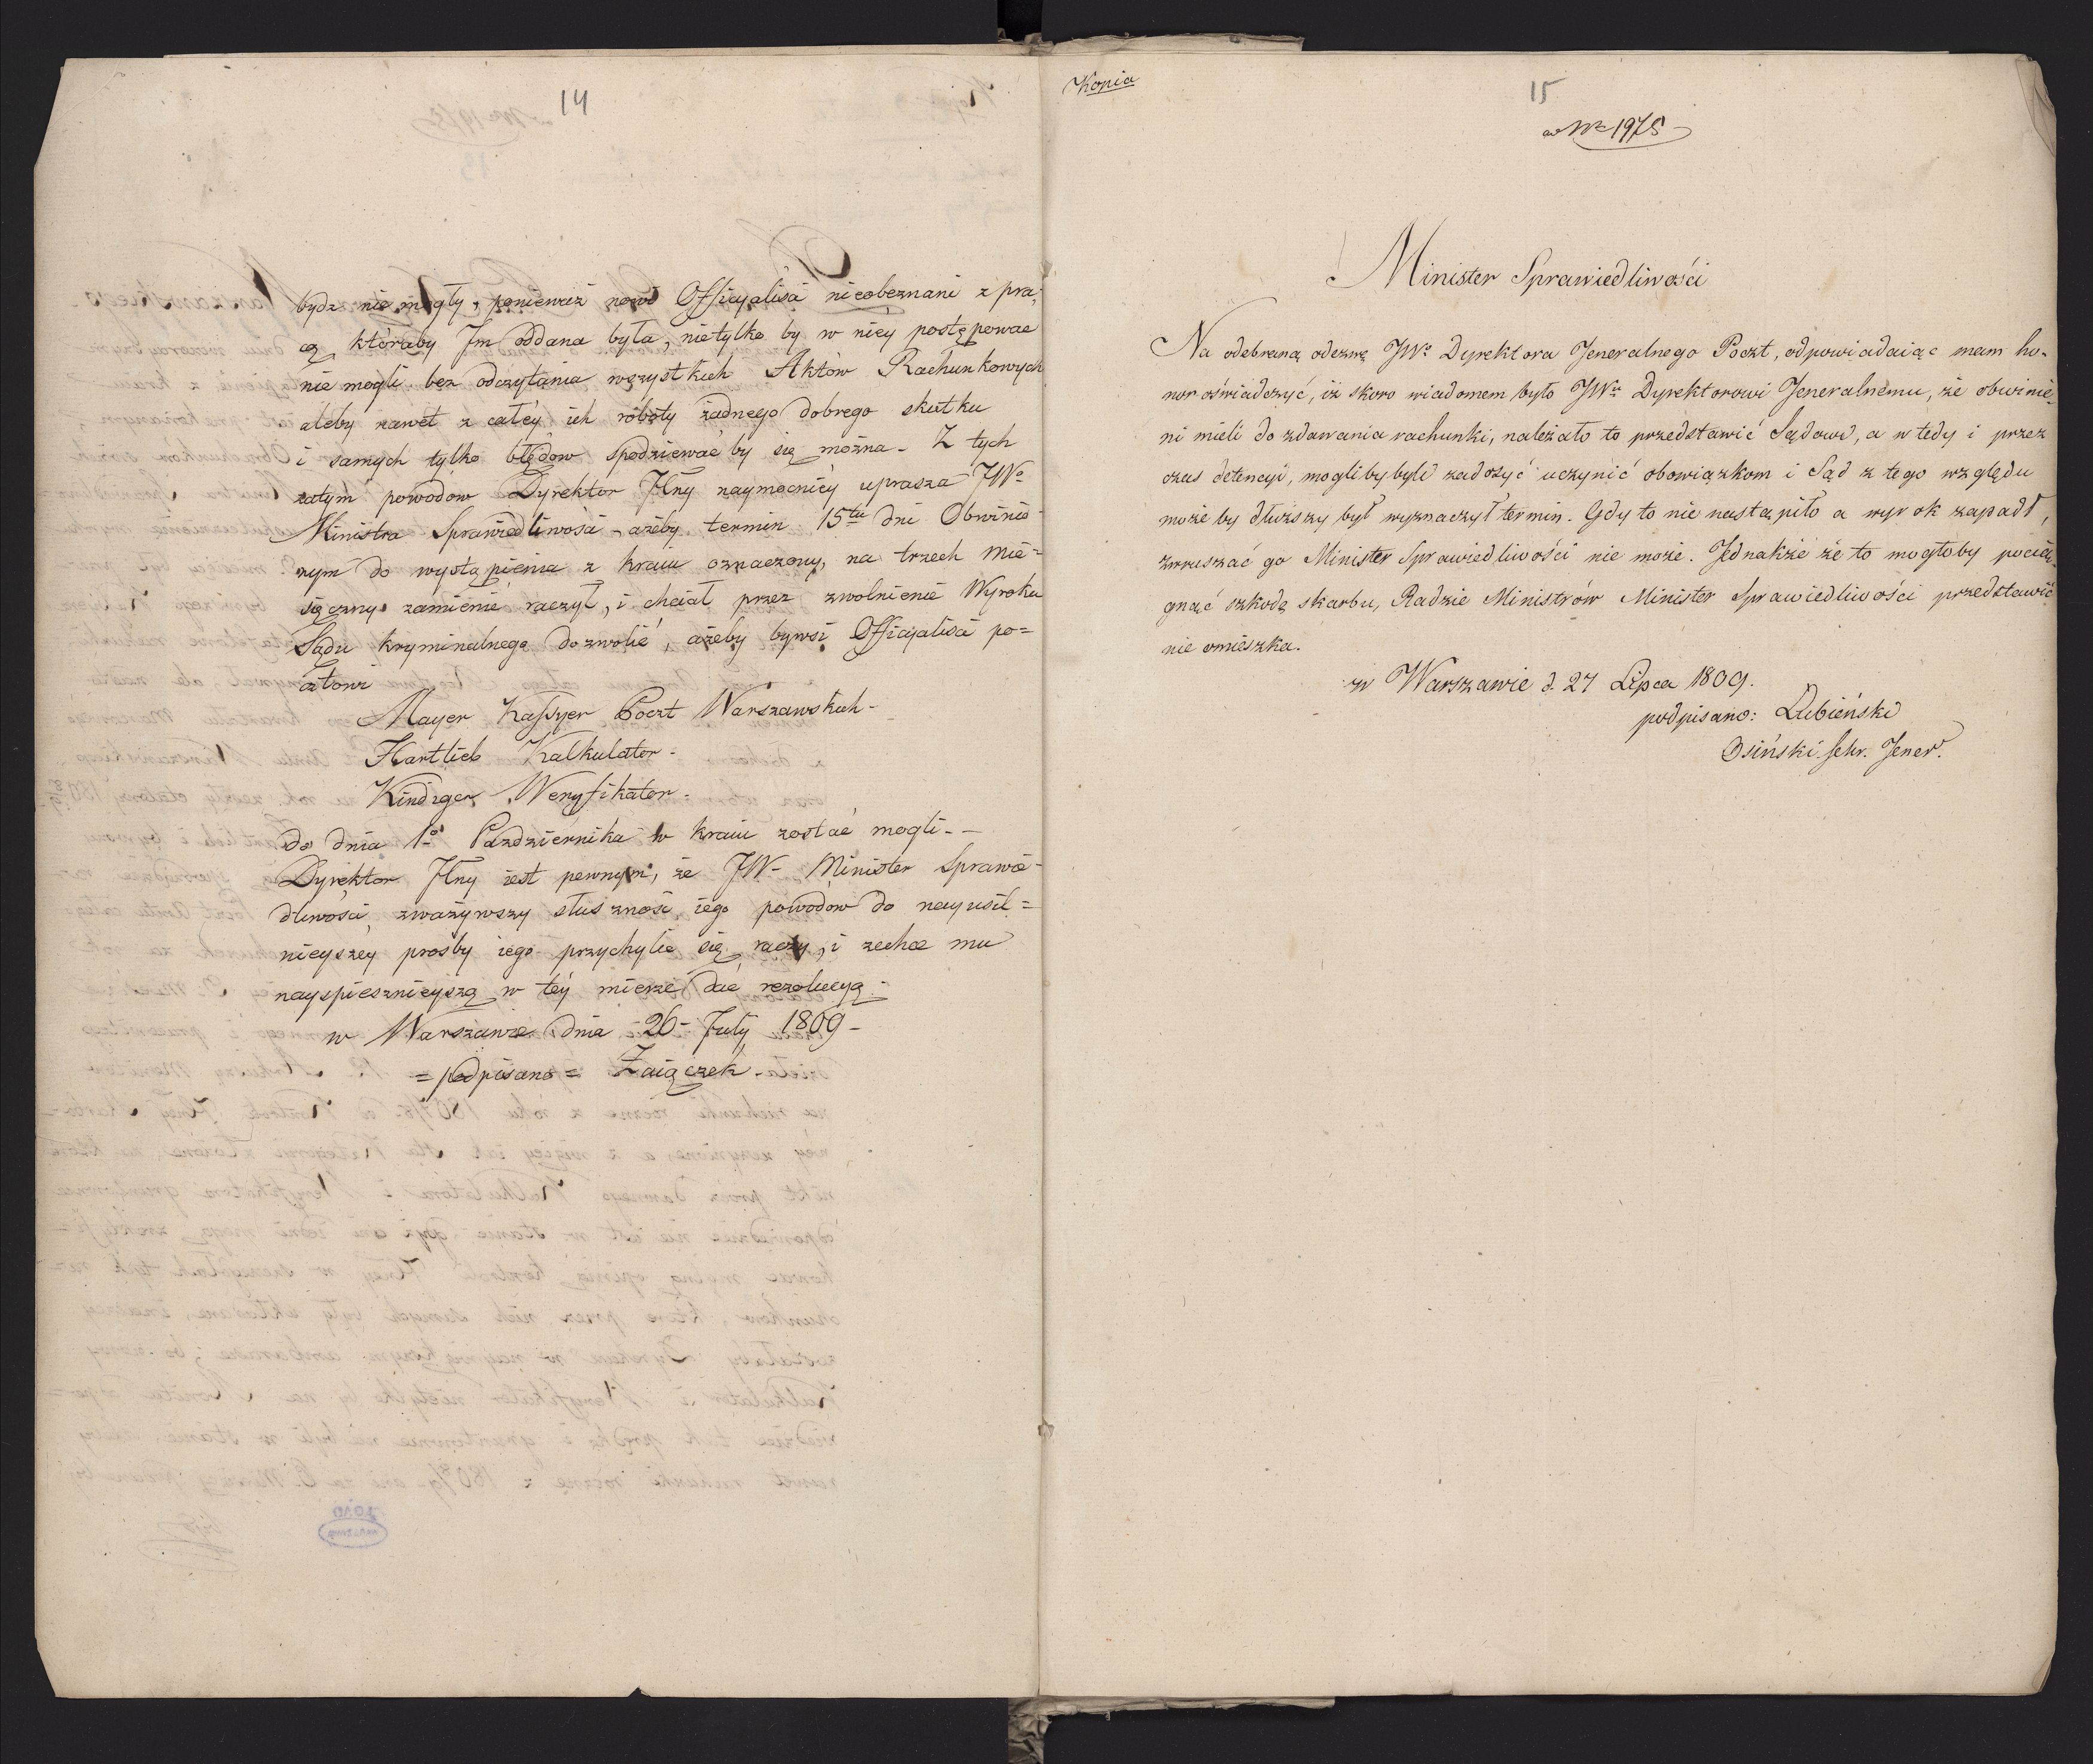 14
bydz nie mogły, ponieważ nowi Officyalisci nieobeznani z pra-
cą, któraby Jm oddana była, nietylko by w niéy postępować
nie mogli bez odczytania wszystkich Aktów Rachunkowych
aleby nawet z całéy ich roboty żadnego dobrego skutku
i samych tylko błędow spodziewać by się można - Z tych
zatym powodow Dyrektor Jlny naymocniéy uprasza JWo
Ministra Sprawiedliwości - ażeby termin 15tu dni Obwinio-
nym do wystąpienia z kraiu oznaczony, na trzech mie=
sięczny zamienić raczył, i chciał przez zwolnienie Wyroku
Sądu kryminalnego dozwolić, ażeby bywsi Officyalisci po=
cztowi
Mayer Kassyer Poczt Warszawskich -
Hartlieb Kalkulator -
Kindiger Weryfikator -
do dnia 1o Pazdziernika w kraiu zostać mogli - -
Dyrektor Jlny iest pewnym, że JW - Minister Sprawie-
dliwości, zważywszy słuszność iego powodow do nayusil=
nieyszéy prośby iego przychylić się raczy, i zechce mu
nayspiesznieyszą w téy mierze dać rezolucyą -
w Warszawie dnia - 26 - July 1809 -
= podpisano = Zaiączek -
Kopia
15
ad Nr 1975
Minister Sprawiedliwości
Na odebraną odezwę JWo Dyrektora Jeneralnego Poczt, odpowiadaiąc mam ho-
nor oświadczyć, iż skoro wiadomem było JWu Dyrektorowi Jeneralnemu, że obwinie-
ni mieli do zdawania rachunki, należało to przedstawić Sądowi, a wtedy i przez
czas detencyi, mogliby byli zadosyć uczynić obowiązkom i Sąd z tego względu
możeby dłuższy był wyznaczył termin. Gdy to nie nastąpiło a wyrok zapadł,
zwruszać go Minister Sprawiedliwości nie może. Jednakże że to mogłoby pocią-
gnąć szkodę skarbu, Radzie Ministrów Minister Sprawiedliwości przedstawić
nie omieszka.
w Warszawie d. 27 Lipca 1809.
podpisano: Łubieński
Osiński Sekr. Jener.